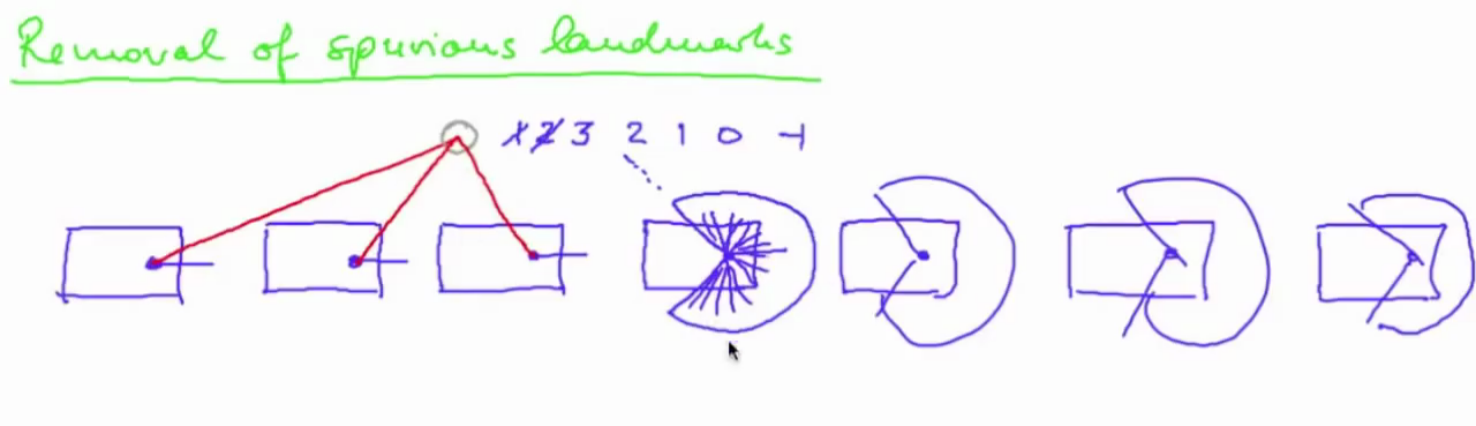 Removal of spurious landmarks
1 2 3 2 1 0 -1